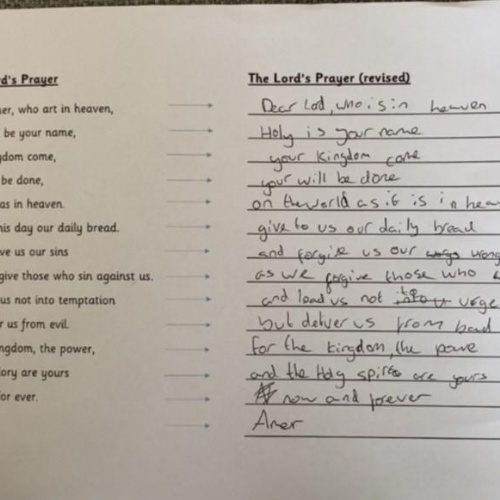 rd's Prayer The Lord's Prayer (revised)
er, who art in heaven, Dear Lod, who is in heaven
be your name, Holy is your name
gdom come, your Kingdom come
be done, your will be done
as in heaven. on the world as it is in heav
his day our daily bread. give to us our daily bread
ve us our sins and forgive us our wrong
give those who sin against us. as we forgive those who
us not into temptation and lead us not to urge
r us from evil. but deliver us from bad
ngdom, the power, for the kingdom, the powe
lory are yours and the Holy spirit are yours
or ever. now and forever
Amen